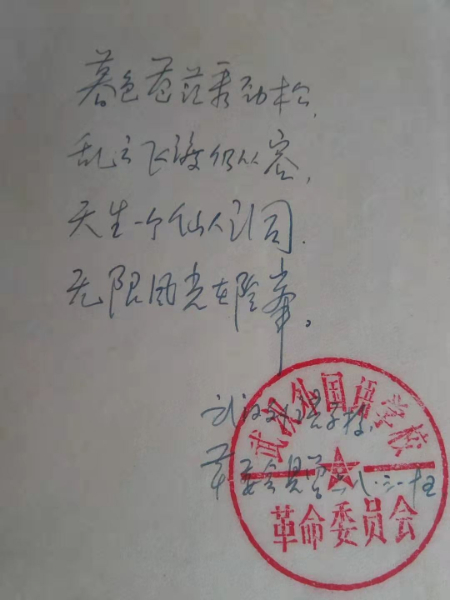 暮色苍茫看劲松,
乱云飞渡仍从容,
天生一个仙人洞.
无限风光在险峰。
武汉外国语学校
革委会
武汉外国语学校
革命委员会